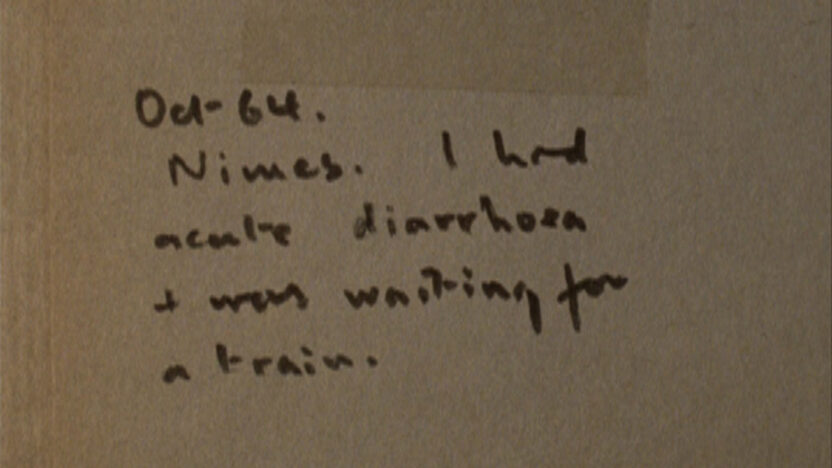 Oct-64.
Nimes. I had
acute diarrhoea
+ was waiting for
a train.